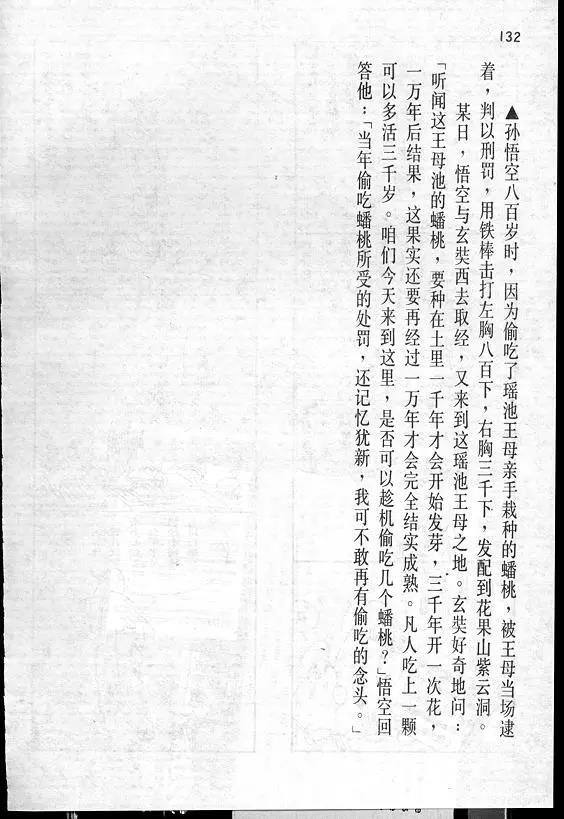 132
▲孙悟空八百岁时，因为偷吃了瑶池王母亲手栽种的蟠桃，被王母当场逮
着，判以刑罚，用铁棒击打左胸八百下，右胸三千下，发配到花果山紫云洞。
某日，悟空与玄奘西去取经，又来到这瑶池王母之地。玄奘好奇地问：
「听闻这王母池的蟠桃，要种在土里一千年才会开始发芽，三千年开一次花，
一万年后结果，这果实还要再经过一万年才会完全结实成熟。凡人吃上一颗
可以多活三千岁。咱们今天来到这里，是否可以趁机偷吃几个蟠桃？」悟空回
答他：「当年偷吃蟠桃所受的处罚，还记忆犹新，我可不敢再有偷吃的念头。」